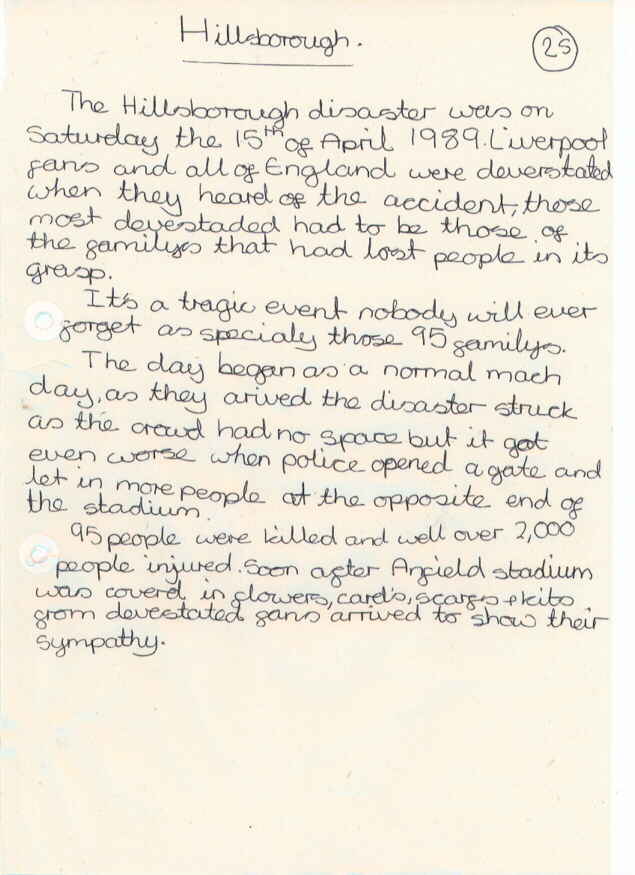 Hillsborough.
25
The Hillsborough disaster was on
Saturday the 15th of April 1989. Liverpool
fans and all of England were deverstated
when they heard of the accident, those
most devestaded had to be those of
the familys that had lost people in its
grasp.
It's a tragic event nobody will ever
forget as specialy those 95 familys.
The day began as a normal mach
day, as they arived the disaster struck
as the crowd had no space but it got
even worse when police opened a gate and
let in more people at the opposite end of
the stadium.
95 people were killed and well over 2,000
people injured. Soon after Anfield stadium
was coverd in flowers, card's, scarfs + kits
from devestated fans arrived to show their
sympathy.